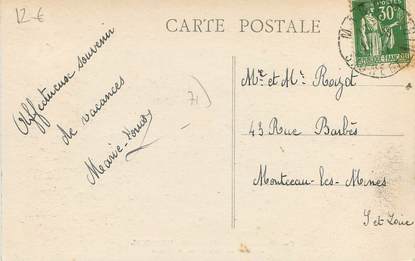 12 €
CARTE POSTALE
POSTES
30c
Affectueux souvenir
de vacances
Marie-Louise
71
Mr et Me Rozot
43 Rue Barbès
Montceau-les-Mines
S et Loire